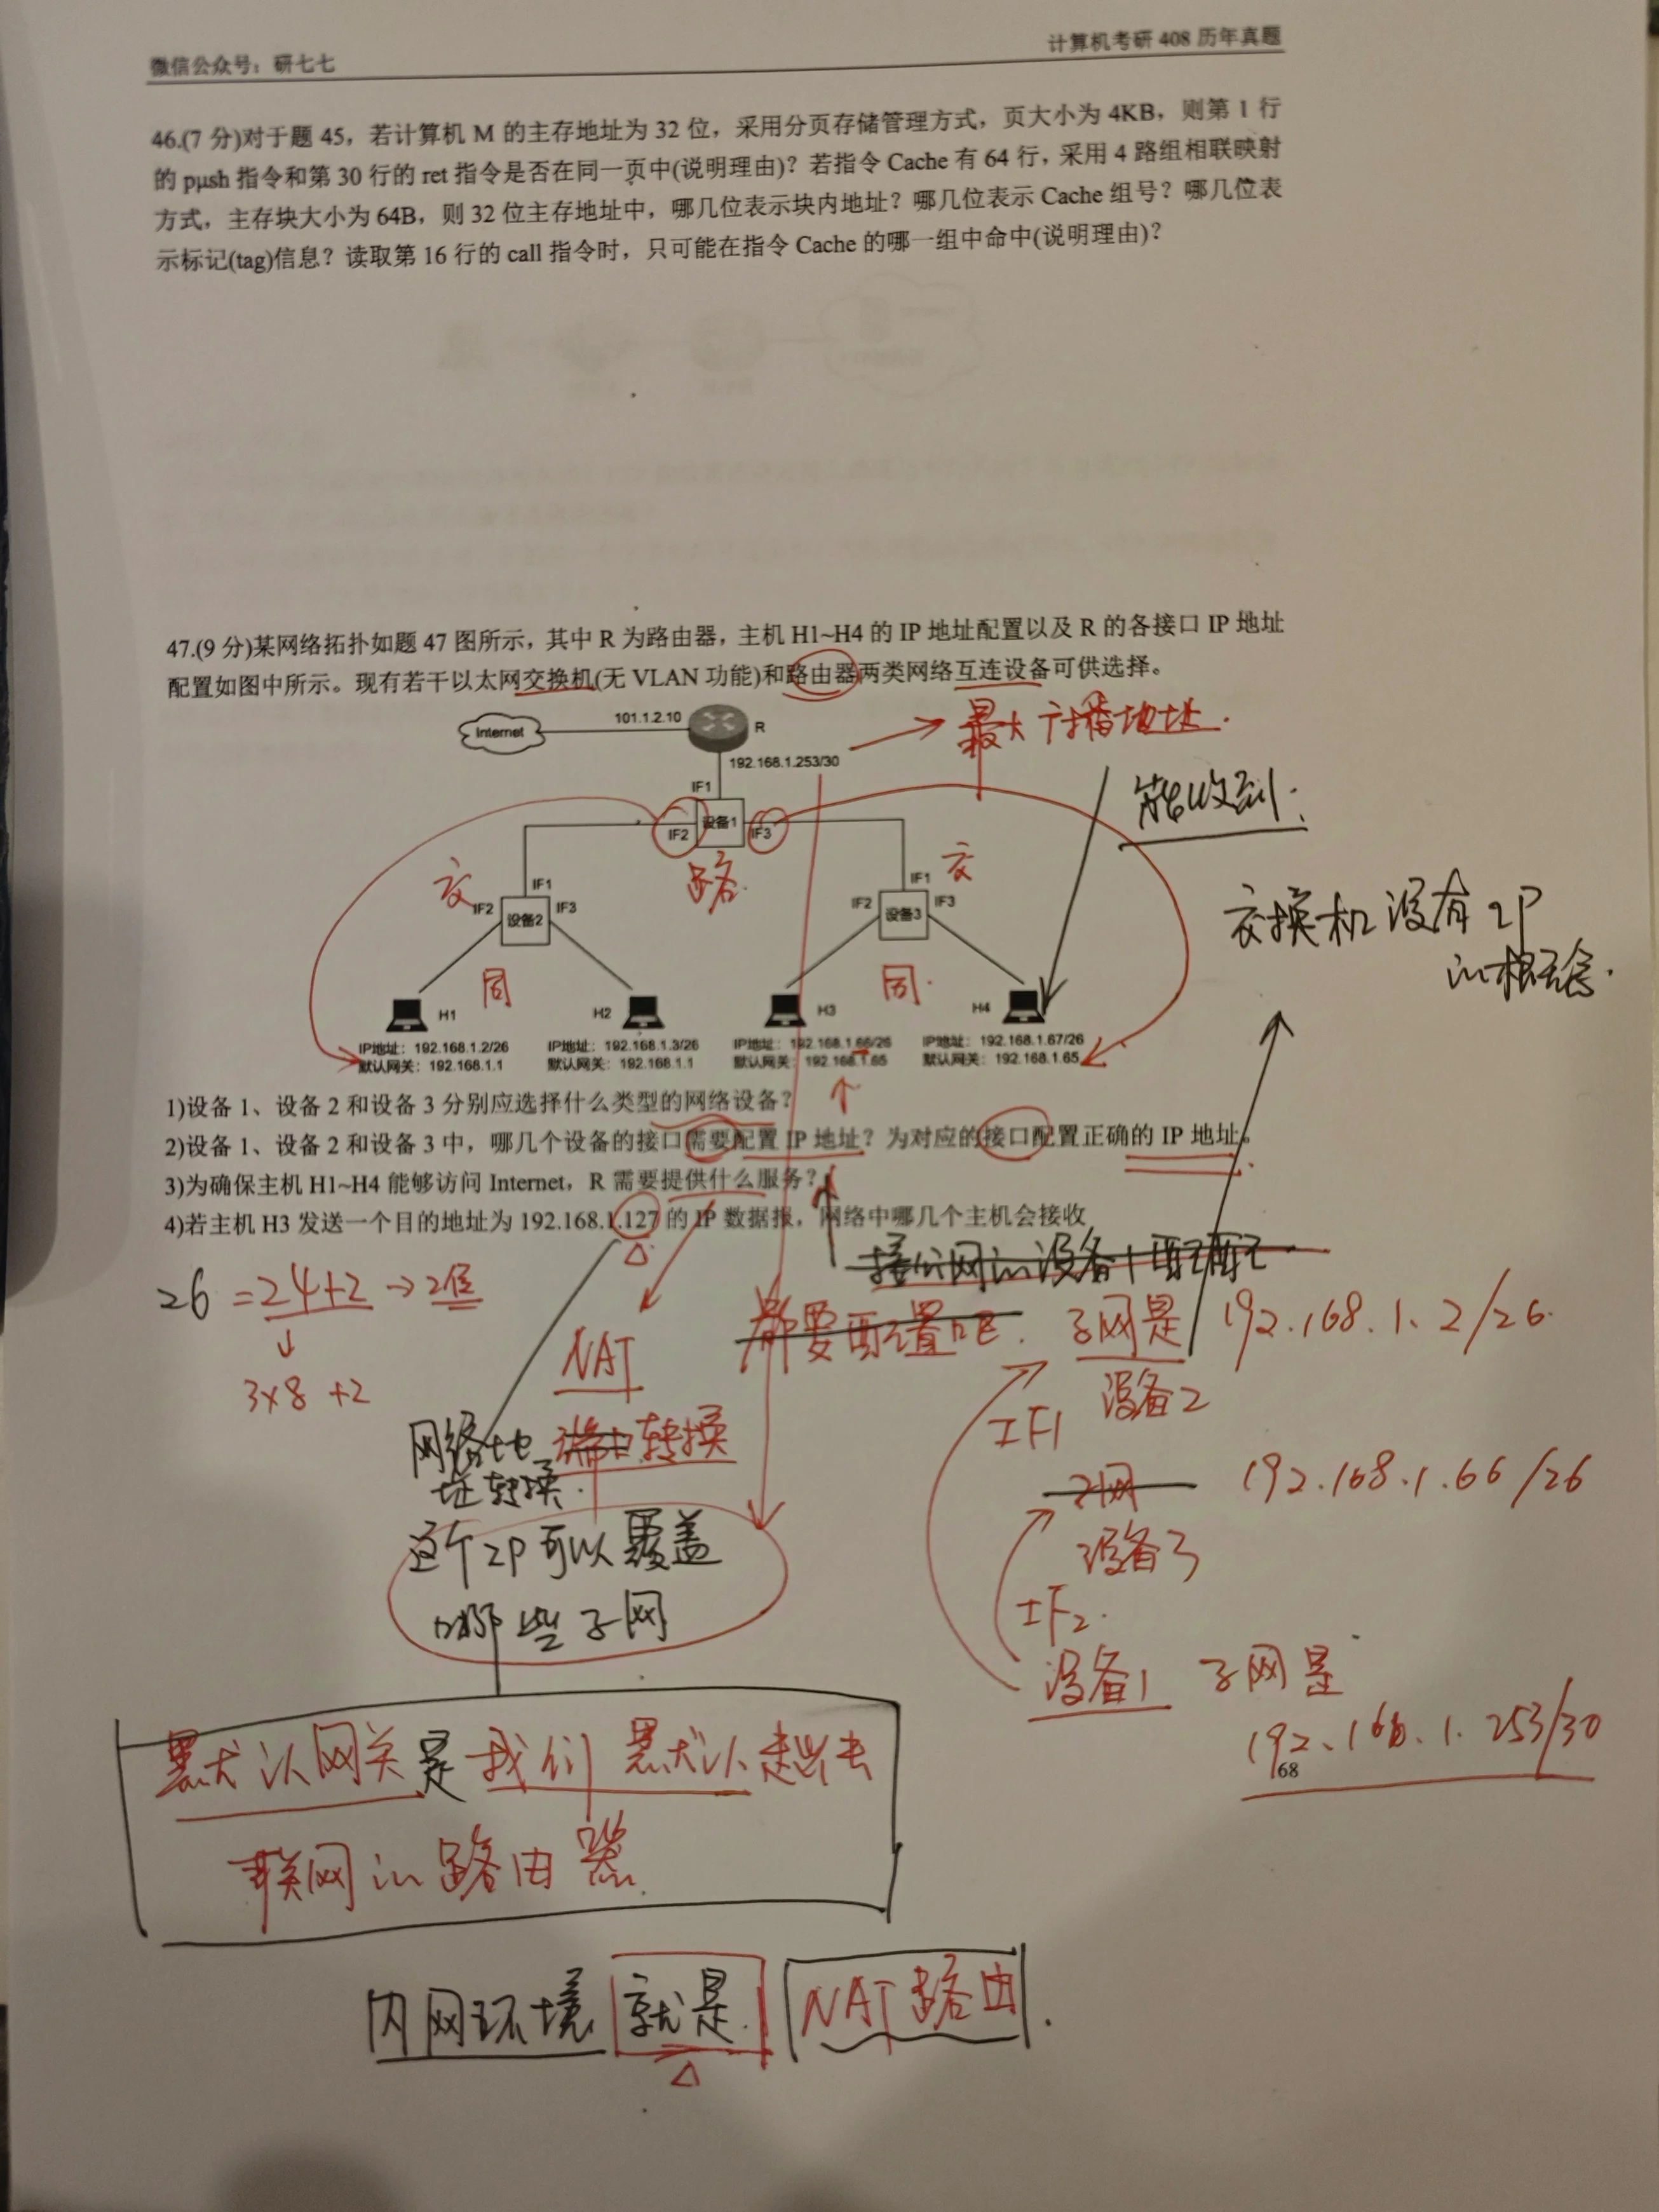 微信公众号：研七七
计算机考研 408 历年真题
46.(7 分)对于题 45，若计算机 M 的主存地址为 32 位，采用分页存储管理方式，页大小为 4KB，则第 1 行
的 push 指令和第 30 行的 ret 指令是否在同一页中(说明理由)？若指令 Cache 有 64 行，采用 4 路组相联映射
方式，主存块大小为 64B，则 32 位主存地址中，哪几位表示块内地址？哪几位表示 Cache 组号？哪几位表
示标记(tag)信息？读取第 16 行的 call 指令时，只可能在指令 Cache 的哪一组中命中(说明理由)？
47.(9 分)某网络拓扑如题 47 图所示，其中 R 为路由器，主机 H1~H4 的 IP 地址配置以及 R 的各接口 IP 地址
配置如图中所示。现有若干以太网交换机(无 VLAN 功能)和路由器两类网络互连设备可供选择。
Internet
101.1.2.10
R
192.168.1.253/30
最大广播地址.
能收到.
IF1
IF2
设备1
IF3
路.
交
交
IF1
IF2
设备2
IF3
IF1
IF2
设备3
IF3
交换机没有IP
的概念.
同
同.
H1
H2
H3
H4
IP地址：192.168.1.2/26
默认网关：192.168.1.1
IP地址：192.168.1.3/26
默认网关：192.168.1.1
IP地址：192.168.1.66/26
默认网关：192.168.1.65
IP地址：192.168.1.67/26
默认网关：192.168.1.65
1)设备 1、设备 2 和设备 3 分别应选择什么类型的网络设备？
2)设备 1、设备 2 和设备 3 中，哪几个设备的接口需要配置 IP 地址？为对应的接口配置正确的 IP 地址。
3)为确保主机 H1~H4 能够访问 Internet，R 需要提供什么服务？
4)若主机 H3 发送一个目的地址为 192.168.1.127 的 IP 数据报，网络中哪几个主机会接收
26 =24+2→2位
3×8 +2
NAT
都要配置吧.
子网是 192.168.1.2/26.
设备2
IF1
网络地
址转换.
端口转换
子网 192.168.1.66/26
设备3
IF2.
这个IP可以覆盖
哪些子网
设备1 子网是
192.168.1.253/30
68
默认网关是我们默认起出去
联网的路由器.
内网环境就是.NAT路由.